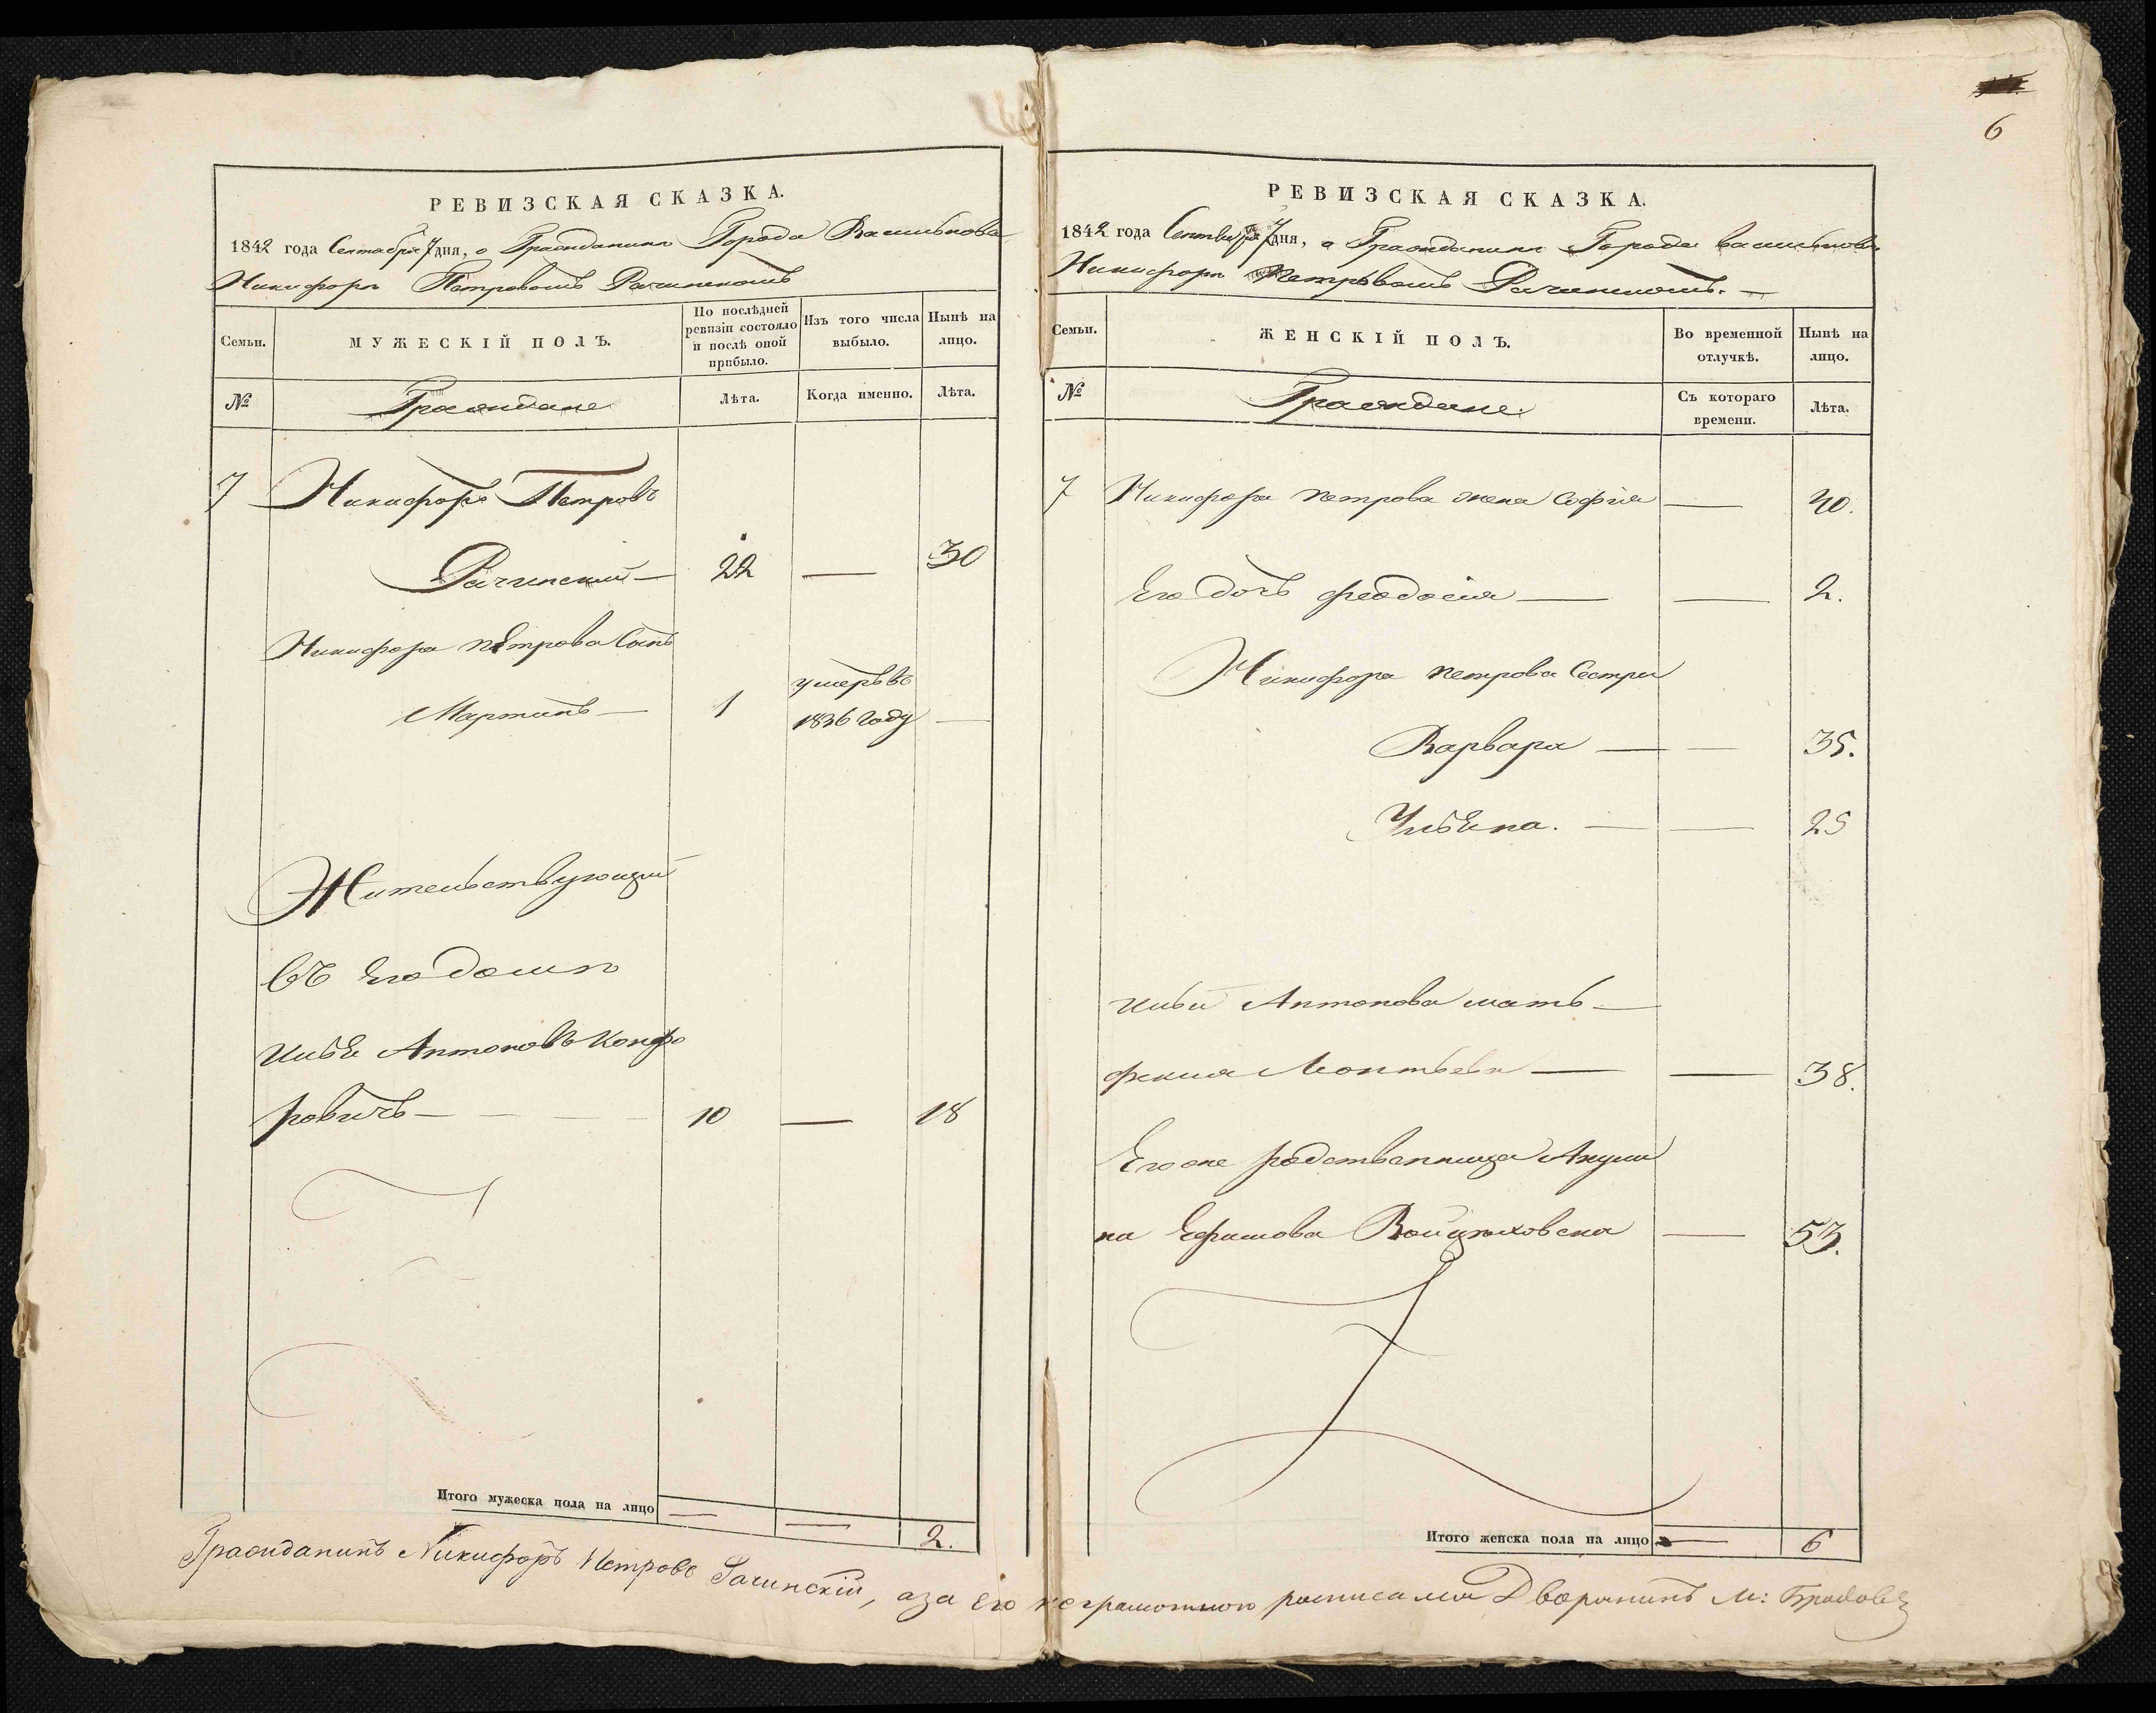 6
РЕВИЗСКАЯ СКАЗКА.
1842 года Сентября 7 дня, о Гражданинѣ Города Василькова
Никифорѣ Петровомъ Рачинскомъ
Семьи.
МУЖЕСКІЙ ПОЛЪ.
По послѣдней ревизіи состояло и послѣ оной прибыло.
Изъ того числа выбыло.
Нынѣ на лицо.
№
Граждане
Лѣта.
Когда именно.
Лѣта.
7 Никифоръ Петровъ
Рачинский — 22 — 30
Никифора Петрова Сынъ
Мартинъ — 1 умеръ въ 1836 году —
Жительствующий
въ его домѣ
Илья Антоновъ Конфо
ровичъ — 10 — 18
Итого мужеска пола на лицо — — 2.
РЕВИЗСКАЯ СКАЗКА.
1842 года Сентября 7 дня, о Гражданинѣ Города Василькова
Никифорѣ Петровомъ Рачинскомъ. —
Семьи.
ЖЕНСКІЙ ПОЛЪ.
Во временной отлучкѣ.
Нынѣ на лицо.
№
Граждане.
Съ котораго времени.
Лѣта.
7 Никифора Петрова жена Софія — 40.
Его дочь Феодосія — — 2.
Никифора Петрова Сестри
Варвара — — 35.
Ульяна. — — 25
Ильи Антонова мать —
Фекла Леонтьева — — 38.
Его же родственница Акули
на Ефимова Войцеховска — 53.
Итого женска пола на лицо — 6
Гражданинъ Никифоръ Петровъ Рачинскій, а за его неграмотного росписался Дворянинъ М: